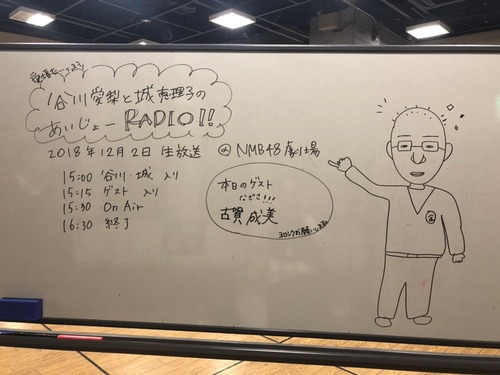 谷川愛梨と城恵理子の
あいじょー RADIO!!
2018年12月2日 生放送 @ NMB48劇場
15:00 谷川・城 入り
15:15 ゲスト 入り
15:30 On Air
16:30 終了
本日のゲスト
なださ!!!
古賀 成美
ヨロシクお願いします